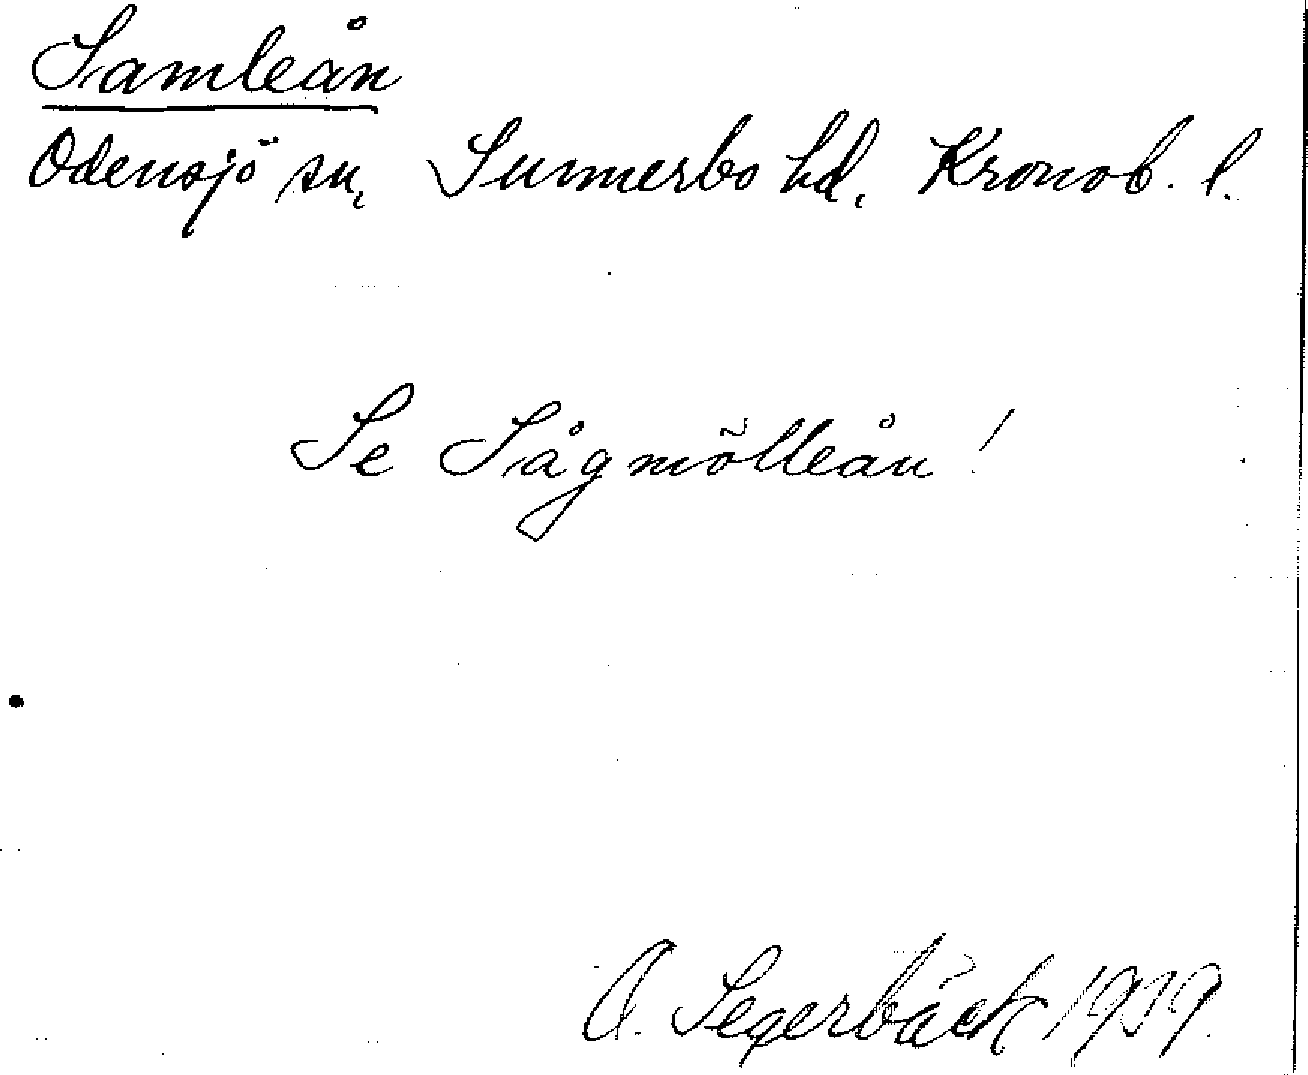 Samleån
Odensjö sn, Sunnerbo hd, Kronob. l.
Se Sågmölleån!
A. Segerbäck 1939.